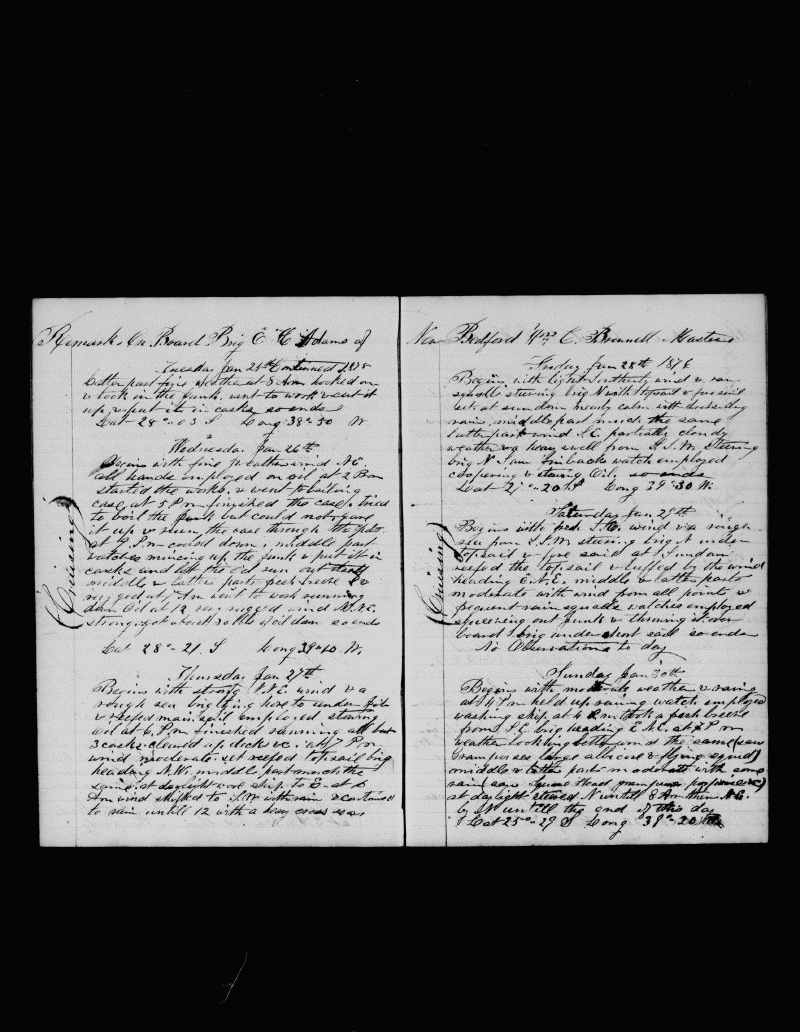 Remarks On Board Brig E H Adams of
Tuesday Jan 25th Continued 1876
Latter part fine weather at 8 Am hooked on
& took in the junk. went to work & cut it
up & put it in casks so ends
Lat 28° 03 S Long 38° 50 W
Wednesday Jan 26th
Begins with fine weather wind N.E.
all hands employed on oil at 2 Pm
started the works. & went to boiling
case. at 5 Pm finished the case. tried
to boil the junk but could not, gave
it up & run the case through the pots
at 9 Pm cooled down, middle part
watches mincing up the junk & put it in
casks and let the oil run out
middle & latter parts fresh breeze &
rugged at 7 Am went to work running
down Oil at 12 very rugged wind N.N.E.
strong. got about bbls of oil down so ends
Lat 28° 21 S Long 39° 10 W.
Thursday Jan 27th
Begins with strong N.N.E. wind & a
rough sea brig lying hove to under
& reefed main sail employed stowing
oil at 6 Pm finished running all but
3 casks. cleared up decks &c. at 7 Pm
wind moderate. set reefed top sail brig
heading N.W. middle part much the
same. at daylight wore ship. to E. at 8
Am wind shifted to S.W with rain & continued
to rain untill 12 with a heavy cross sea
(Cruising)
New Bedford C. Brownell Master
Friday Jan 28th 1876
Begins with light Southerly wind & rain
squalls steering brig N with topsail & foresail
set. at sun down nearly calm with
rain, middle part much the same
latter part wind S.E. partially cloudy
weather & a heavy swell from S.S.W. Steering
brig N. watch employed
coopering & stowing Oil. so ends
Lat 27° 20 S Long 39° 30 W.
Saturday Jan 29th
Begins with fresh S.E. wind & a rough
sea from S.S.W steering brig N under
topsail & fore sail at Sundown
reefed the top sail & luffed by the wind
heading E.N.E. middle & latter parts
moderate with wind from all points &
frequent rain squalls watches employed
squeezing out junk & throwing it over
board brig under short sail so ends
No Observations to day
Sunday Jan 30th
Begins with moderate weather & raining
at 4 Pm held up raining watch employed
washing ship. at 4 Pm took a fresh breeze
from S.E brig heading E.N.E. at Pm
weather looking better wind the same (saw
Grampuses large albicore & flying squid)
middle & latter parts moderate with some
rain (saw Squid
at daylight steered N untill 8 Am then N.E.
by N untill the end of this day
Lat 25° 29 S Long 39° 20 W
(Cruising)